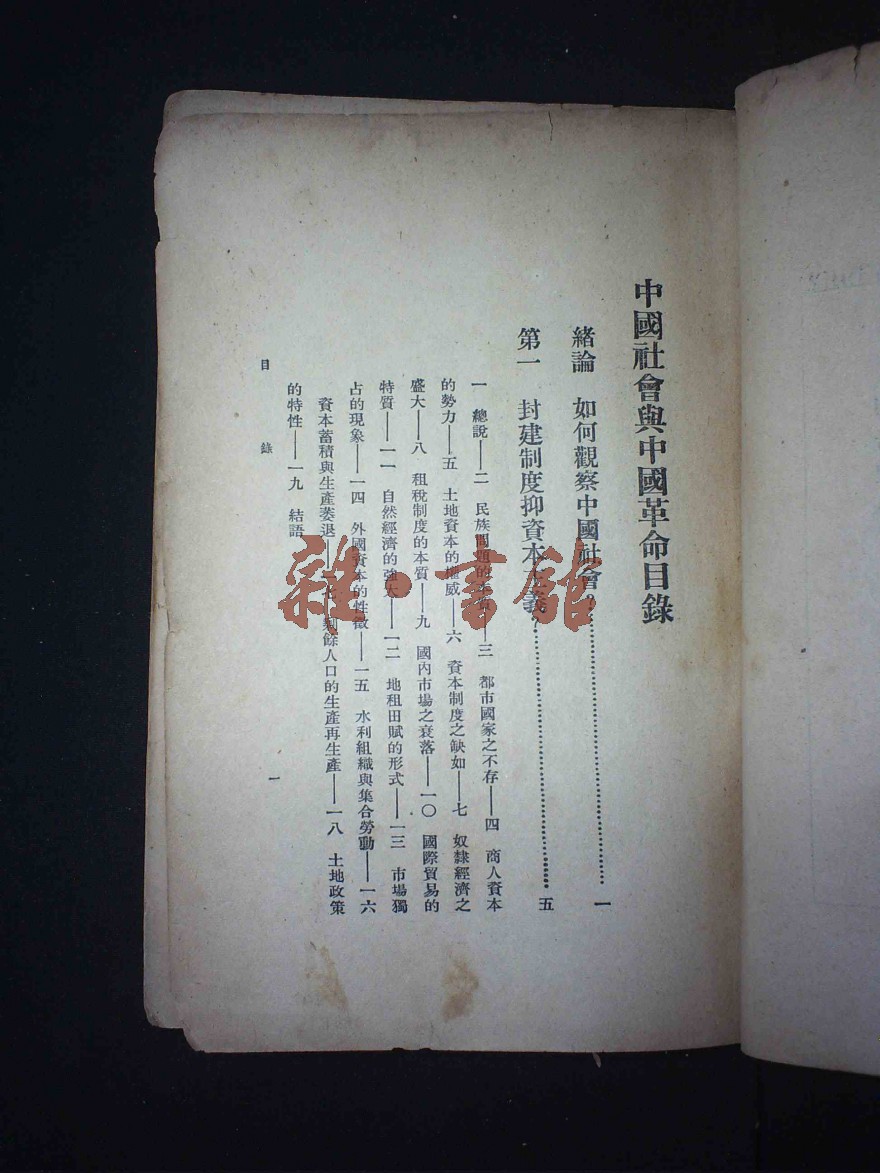 中國社會與中國革命目錄
緒論 如何觀察中國社會?……一
第一 封建制度抑資本主義?……五
一 總說——二 民族問題的本質——三 都市國家之不存——四 商人資本
的勢力——五 土地資本的權威——六 資本制度之缺如——七 奴隸經濟之
盛大——八 租稅制度的本質——九 國內市場之衰落——一〇 國際貿易的
特質——一一 自然經濟的強大——一二 地租田賦的形式——一三 市場獨
占的現象——一四 外國資本的性徵——一五 水利組織與集合勞動——一六
資本蓄積與生產萎退——一七 剩餘人口的生產再生產——一八 土地政策
的特性——一九 結語
目 錄
一
雜·書館